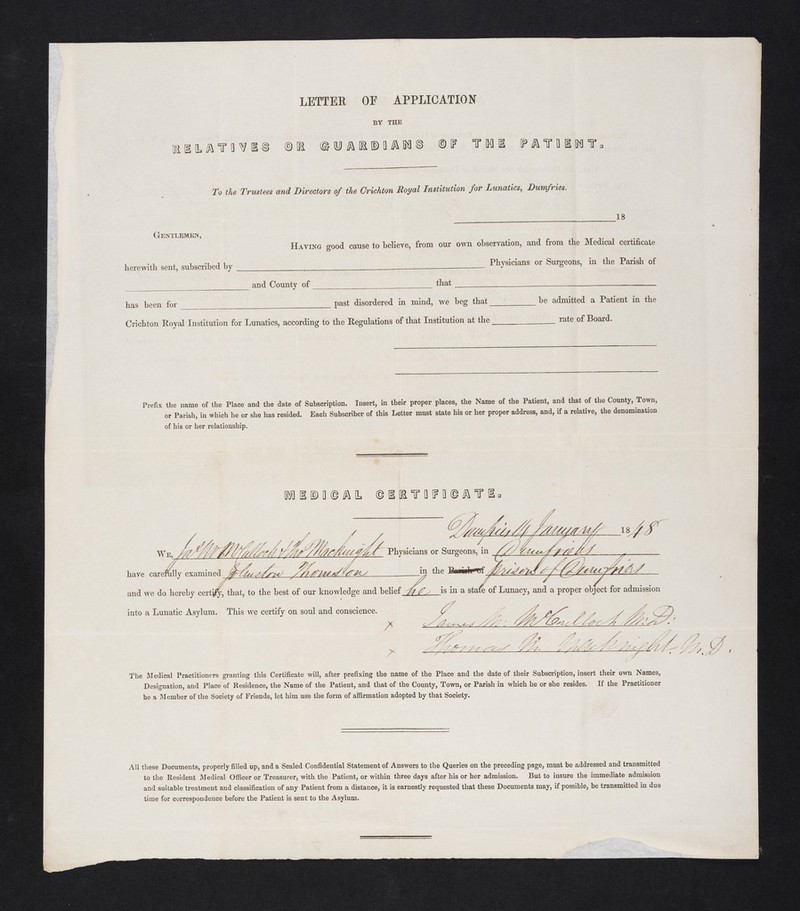 LETTER OF APPLICATION
BY THE
RELATIVES OR GUARDIANS OF THE PATIENT.
To the Trustees and Directors of the Crichton Royal Institution for Lunatics, Dumfries.
18
GENTLEMEN,
HAVING good cause to believe, from our own observation, and from the Medical certificate
herewith sent, subscribed by Physicians or Surgeons, in the Parish of
and County of that
has been for past disordered in mind, we beg that be admitted a Patient in the
Crichton Royal Institution for Lunatics, according to the Regulations of that Institution at the rate of Board.
Prefix the name of the Place and the date of Subscription. Insert, in their proper places, the Name of the Patient, and that of the County, Town,
or Parish, in which he or she has resided. Each Subscriber of this Letter must state his or her proper address, and, if a relative, the denomination
of his or her relationship.
MEDICAL CERTIFICATE.
Dumfries January 1848
WE, Jas McCulloch & Thos Macknight Physicians or Surgeons, in Dumfries
have carefully examined Johnston Thomson in the Parish of prison of Dumfries
and we do hereby certify, that, to the best of our knowledge and belief he is in a state of Lunacy, and a proper object for admission
into a Lunatic Asylum. This we certify on soul and conscience.
x James M. McCulloch M.D.
x Thomas M. Macknight M.D.
The Medical Practitioners granting this Certificate will, after prefixing the name of the Place and the date of their Subscription, insert their own Names,
Designation, and Place of Residence, the Name of the Patient, and that of the County, Town, or Parish in which he or she resides. If the Practitioner
be a Member of the Society of Friends, let him use the form of affirmation adopted by that Society.
All these Documents, properly filled up, and a Sealed Confidential Statement of Answers to the Queries on the preceding page, must be addressed and transmitted
to the Resident Medical Officer or Treasurer, with the Patient, or within three days after his or her admission. But to insure the immediate admission
and suitable treatment and classification of any Patient from a distance, it is earnestly requested that these Documents may, if possible, be transmitted in due
time for correspondence before the Patient is sent to the Asylum.